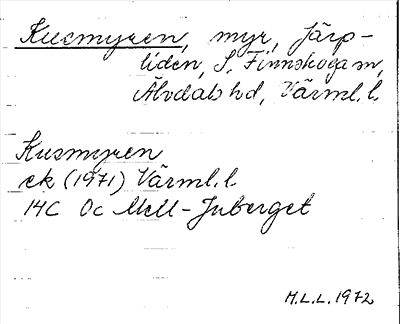 Kusmyren, myr, Järp-
liden, S. Finnskoga sn,
Älvdals hd, Värml. l.
Kusmyren
ek (1971) Värml. l.
14C 0c Mell-Juberget
M.L.L. 1972